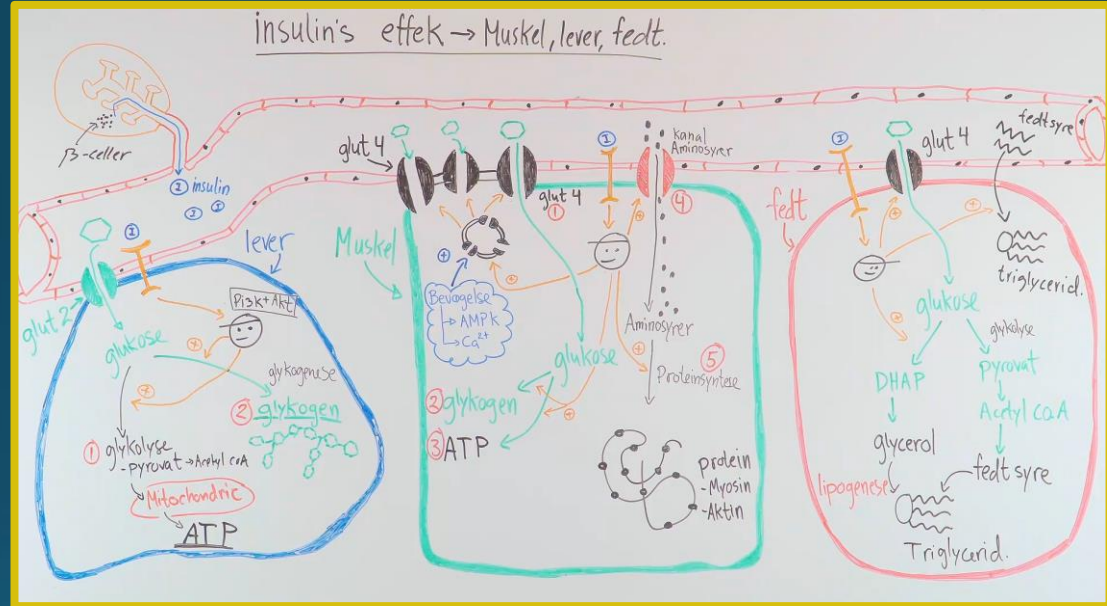 insulin's effek → Muskel, lever, fedt.
β-celler
I insulin
I
I
I
lever
glut 2
Pi3K+Akt
+
+
glukose
glykogenese
2 glykogen
1 glykolyse
- pyrovat → Acetyl coA
Mitochondrie
ATP
Muskel
glut 4
glut 4
1
I
kanal
Aminosyrer
4
+
+
+
Bevægelse
→ AMPK
→ Ca²⁺
+
+
+
Aminosyrer
glukose
5
Proteinsyntese
2 glykogen
3 ATP
protein
- Myosin
- Aktin
fedt
I
glut 4
fedtsyre
+
+
+
triglycerid.
glukose
glykolyse
DHAP
pyrovat
Acetyl coA
glycerol
fedtsyre
lipogenese
Triglycerid.